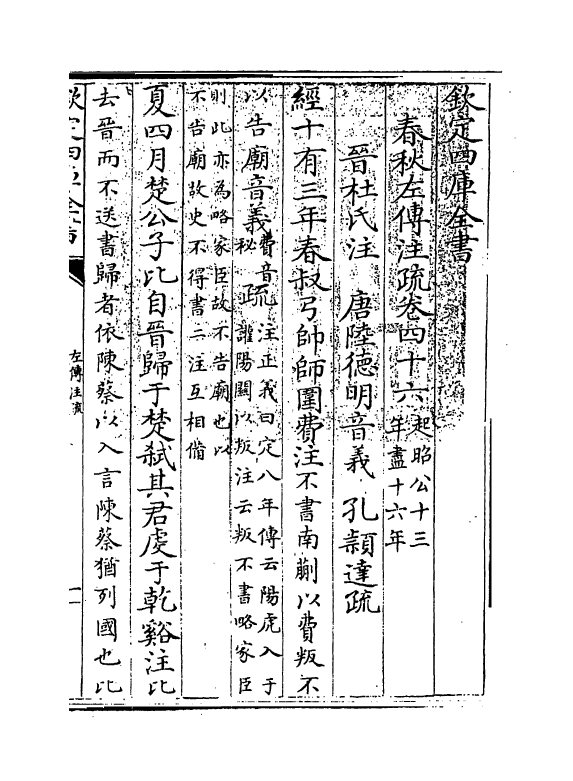 欽定四庫全書
春秋左傳注疏卷四十六起昭公十三年盡十六年
晉杜氏注　唐陸德明音義　孔穎達疏
經十有三年春叔弓帥師圍費注不書南蒯以費叛不
以告廟音義費音秘疏注正義曰定八年傳云陽虎入于讙陽關以叛注云叛不書略家臣
則此亦為略家臣故不告廟也以不告廟故史不得書二注互相備
夏四月楚公子比自晉歸于楚弑其君虔于乾谿注比
去晉而不送書歸者依陳蔡以入言陳蔡猶列國也比
欽定四庫全書
左傳注疏
一